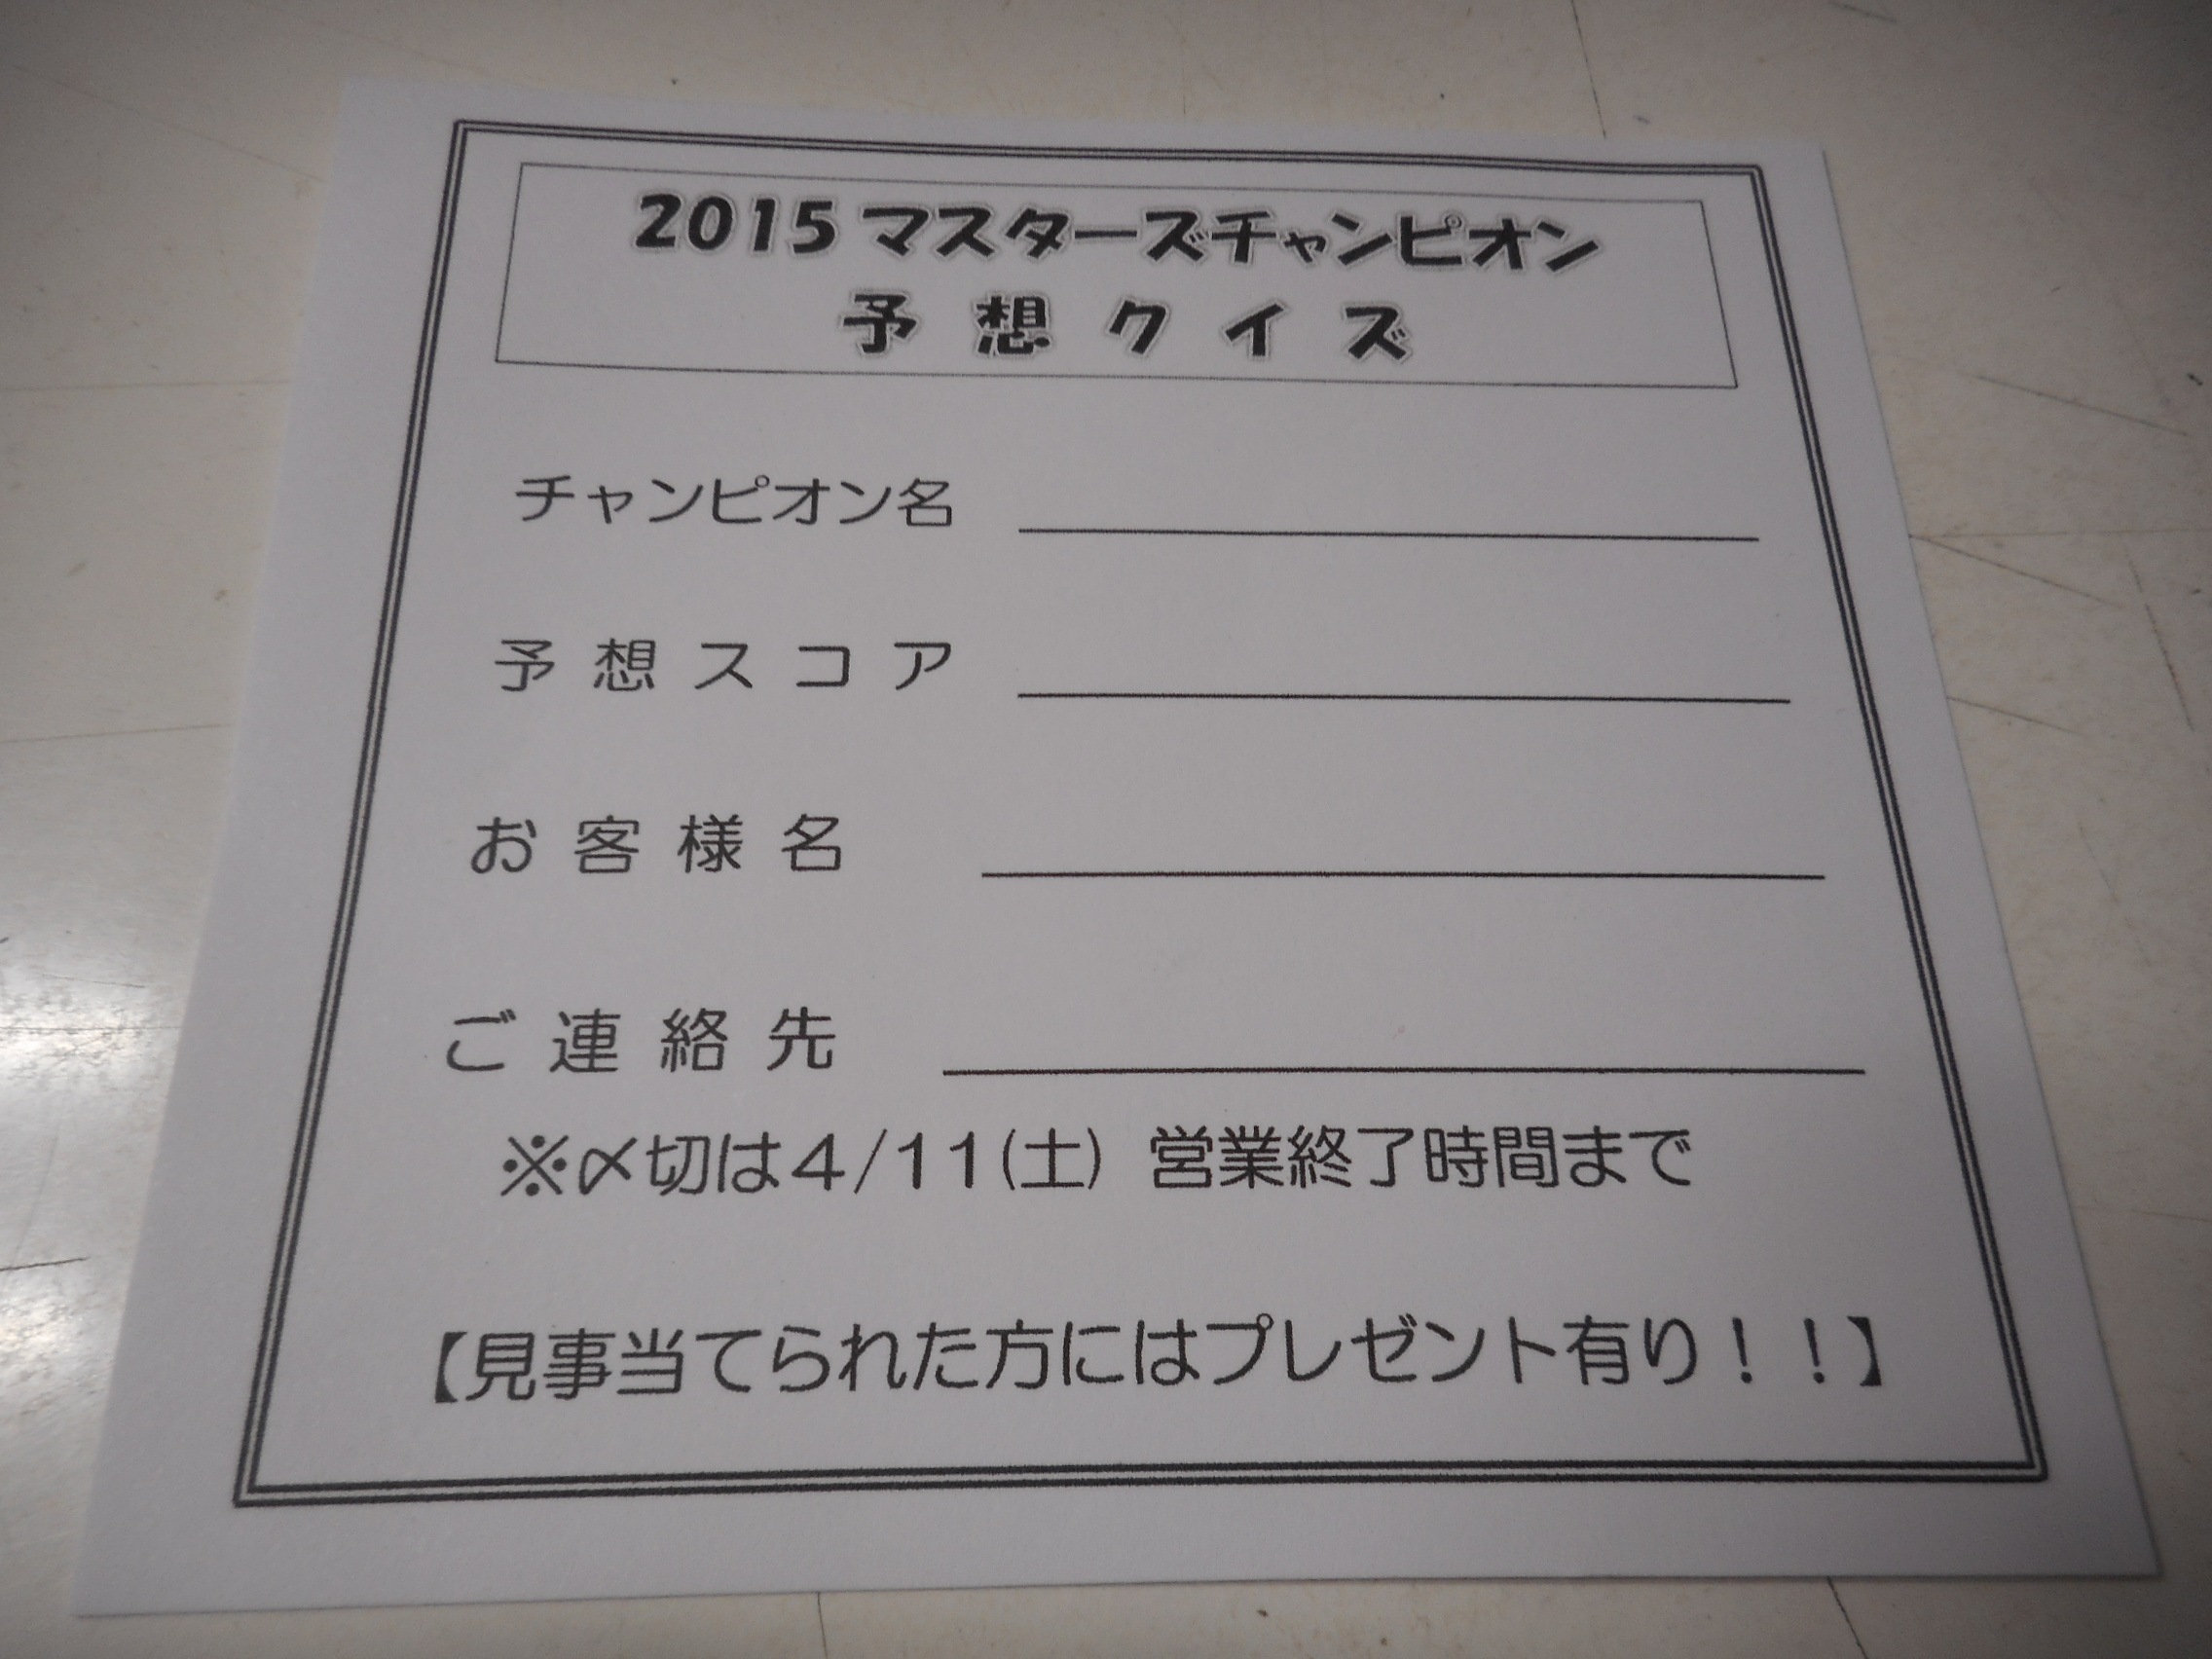 2015マスターズチャンピオン
予想クイズ
チャンピオン名
予想スコア
お客様名
ご連絡先
※〆切は4/11(土) 営業終了時間まで
【見事当てられた方にはプレゼント有り！！】